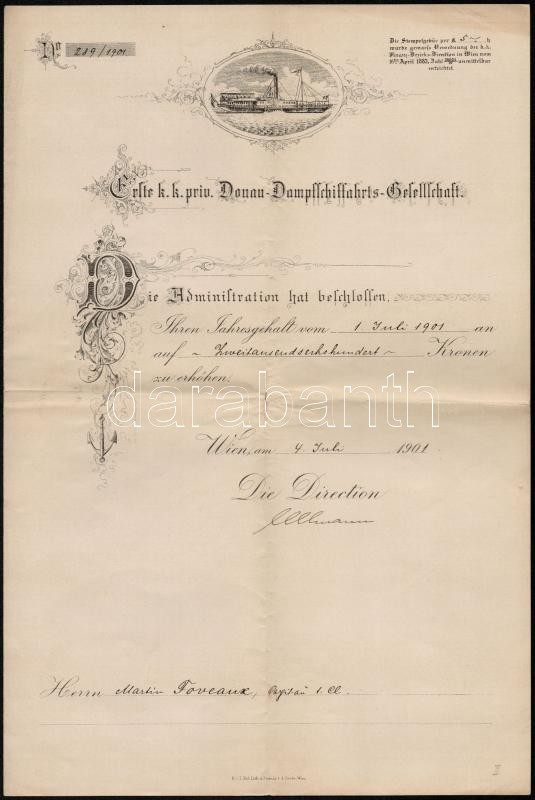 No 289/1901
Die Stempelgebür per K 5 – h
wurde gemæss Verordnung der k.k.
Finanz-Bezirks-Direction in Wien vom
April 1880, Zahl unmittelbar
entrichtet.
Erste k. k. priv. Donau-Dampfschiffahrts-Gesellschaft.
Die Administration hat beschlossen,
Ihren Jahresgehalt vom 1 Juli 1901 an
auf ~ Zweitausendsechshundert ~ Kronen
zu erhöhen.
darabanth
Wien, am 4. Juli 1901.
Die Direction
Ullmann
Herrn Martin Toveaux, Capitän 1. Cl.